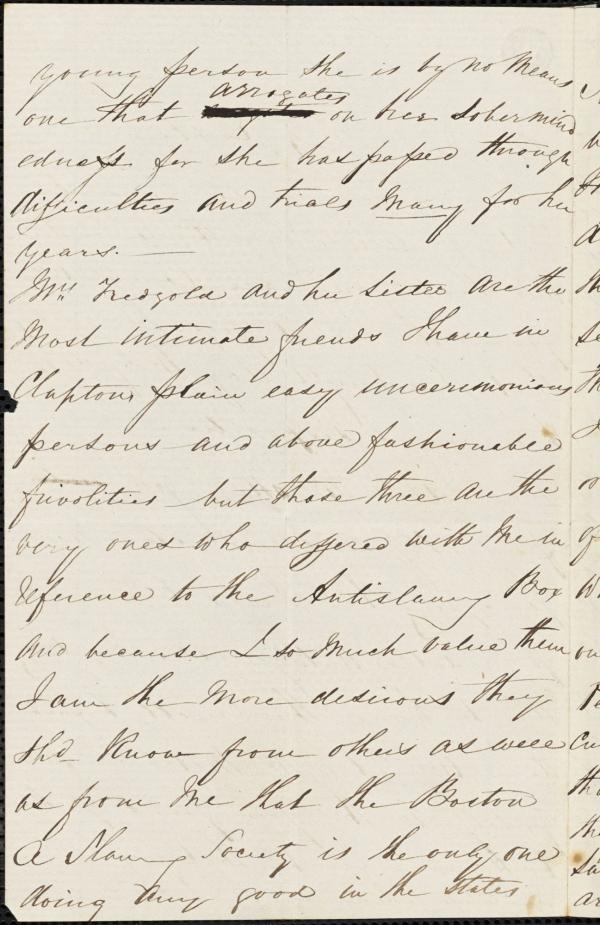 young person she is by no means
arrogates
one that on her sobermind
edness for she has passed through
difficulties and trials many for her
years. —
Mrs Tredgold and her sister are the
Most intimate friends I have in
Clapton, plain easy unceremonious
persons and above fashionable
frivolities but those three are the
very ones who differed with me in
reference to the Antislavery Box
and because I so much value them
I am the more desirous they
shd know from others as well
as from me that the Boston
A Slavery Society is the only one
doing any good in the states